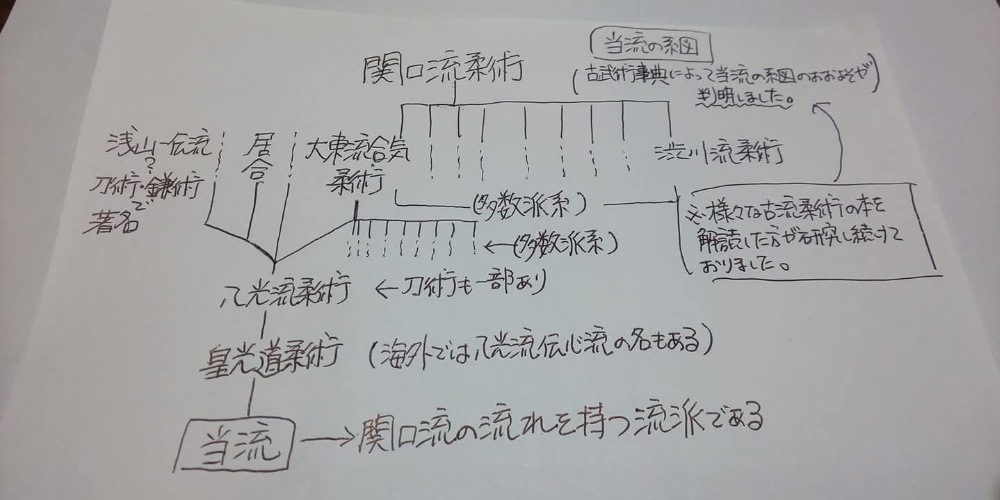 当流の系図
(古武術事典によって当流の系図のおおよそが
判明しました。)
関口流柔術
浅山一伝流
?
刀術・鎌術
で
著名
居合
大東流合気
柔術
渋川流柔術
(多数派系)
←(多数派系)
※様々な古流柔術の本を
解読した方が研究し続けて
おりました。
八光流柔術 ←刀術も一部あり
皇光道柔術 (海外では八光流伝心流の名もある)
当流 →関口流の流れを持つ流派である